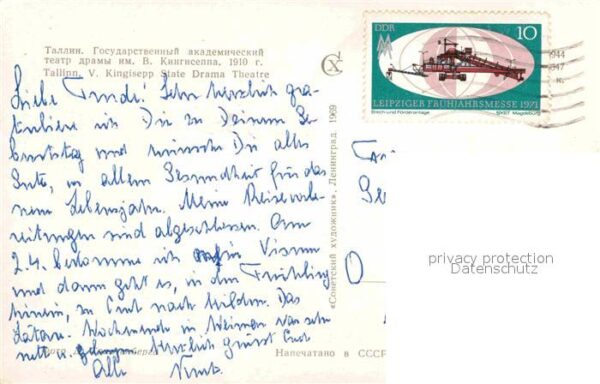 Таллин. Государственный академический
театр драмы им. В. Кингисеппа, 1910 г.
Tallinn, V. Kingisepp State Drama Theatre
Liebe Trude! Sehr herzlich gra-
tuliere ich Dir zu Deinem Ge-
burtstag und wünsche Dir alles
Gute, vor allem Gesundheit für das
neue Lebensjahr. Meine Reisevorbe-
reitungen sind abgeschlossen. Am
2.4. bekomme ich Visum
und dann geht es, in den Frühling
hinein, zu Euch nach Das
Wochenende in Weimar war sehr
nett Herzlich grüsst Euch
Alle
Напечатано в СССР
«Советский художник», Ленинград 1969
DDR
10
LEIPZIGER FRÜHJAHRSMESSE 1971
Blech- und Förderanlage
SKET Magdeburg
1044
privacy protection
Datenschutz